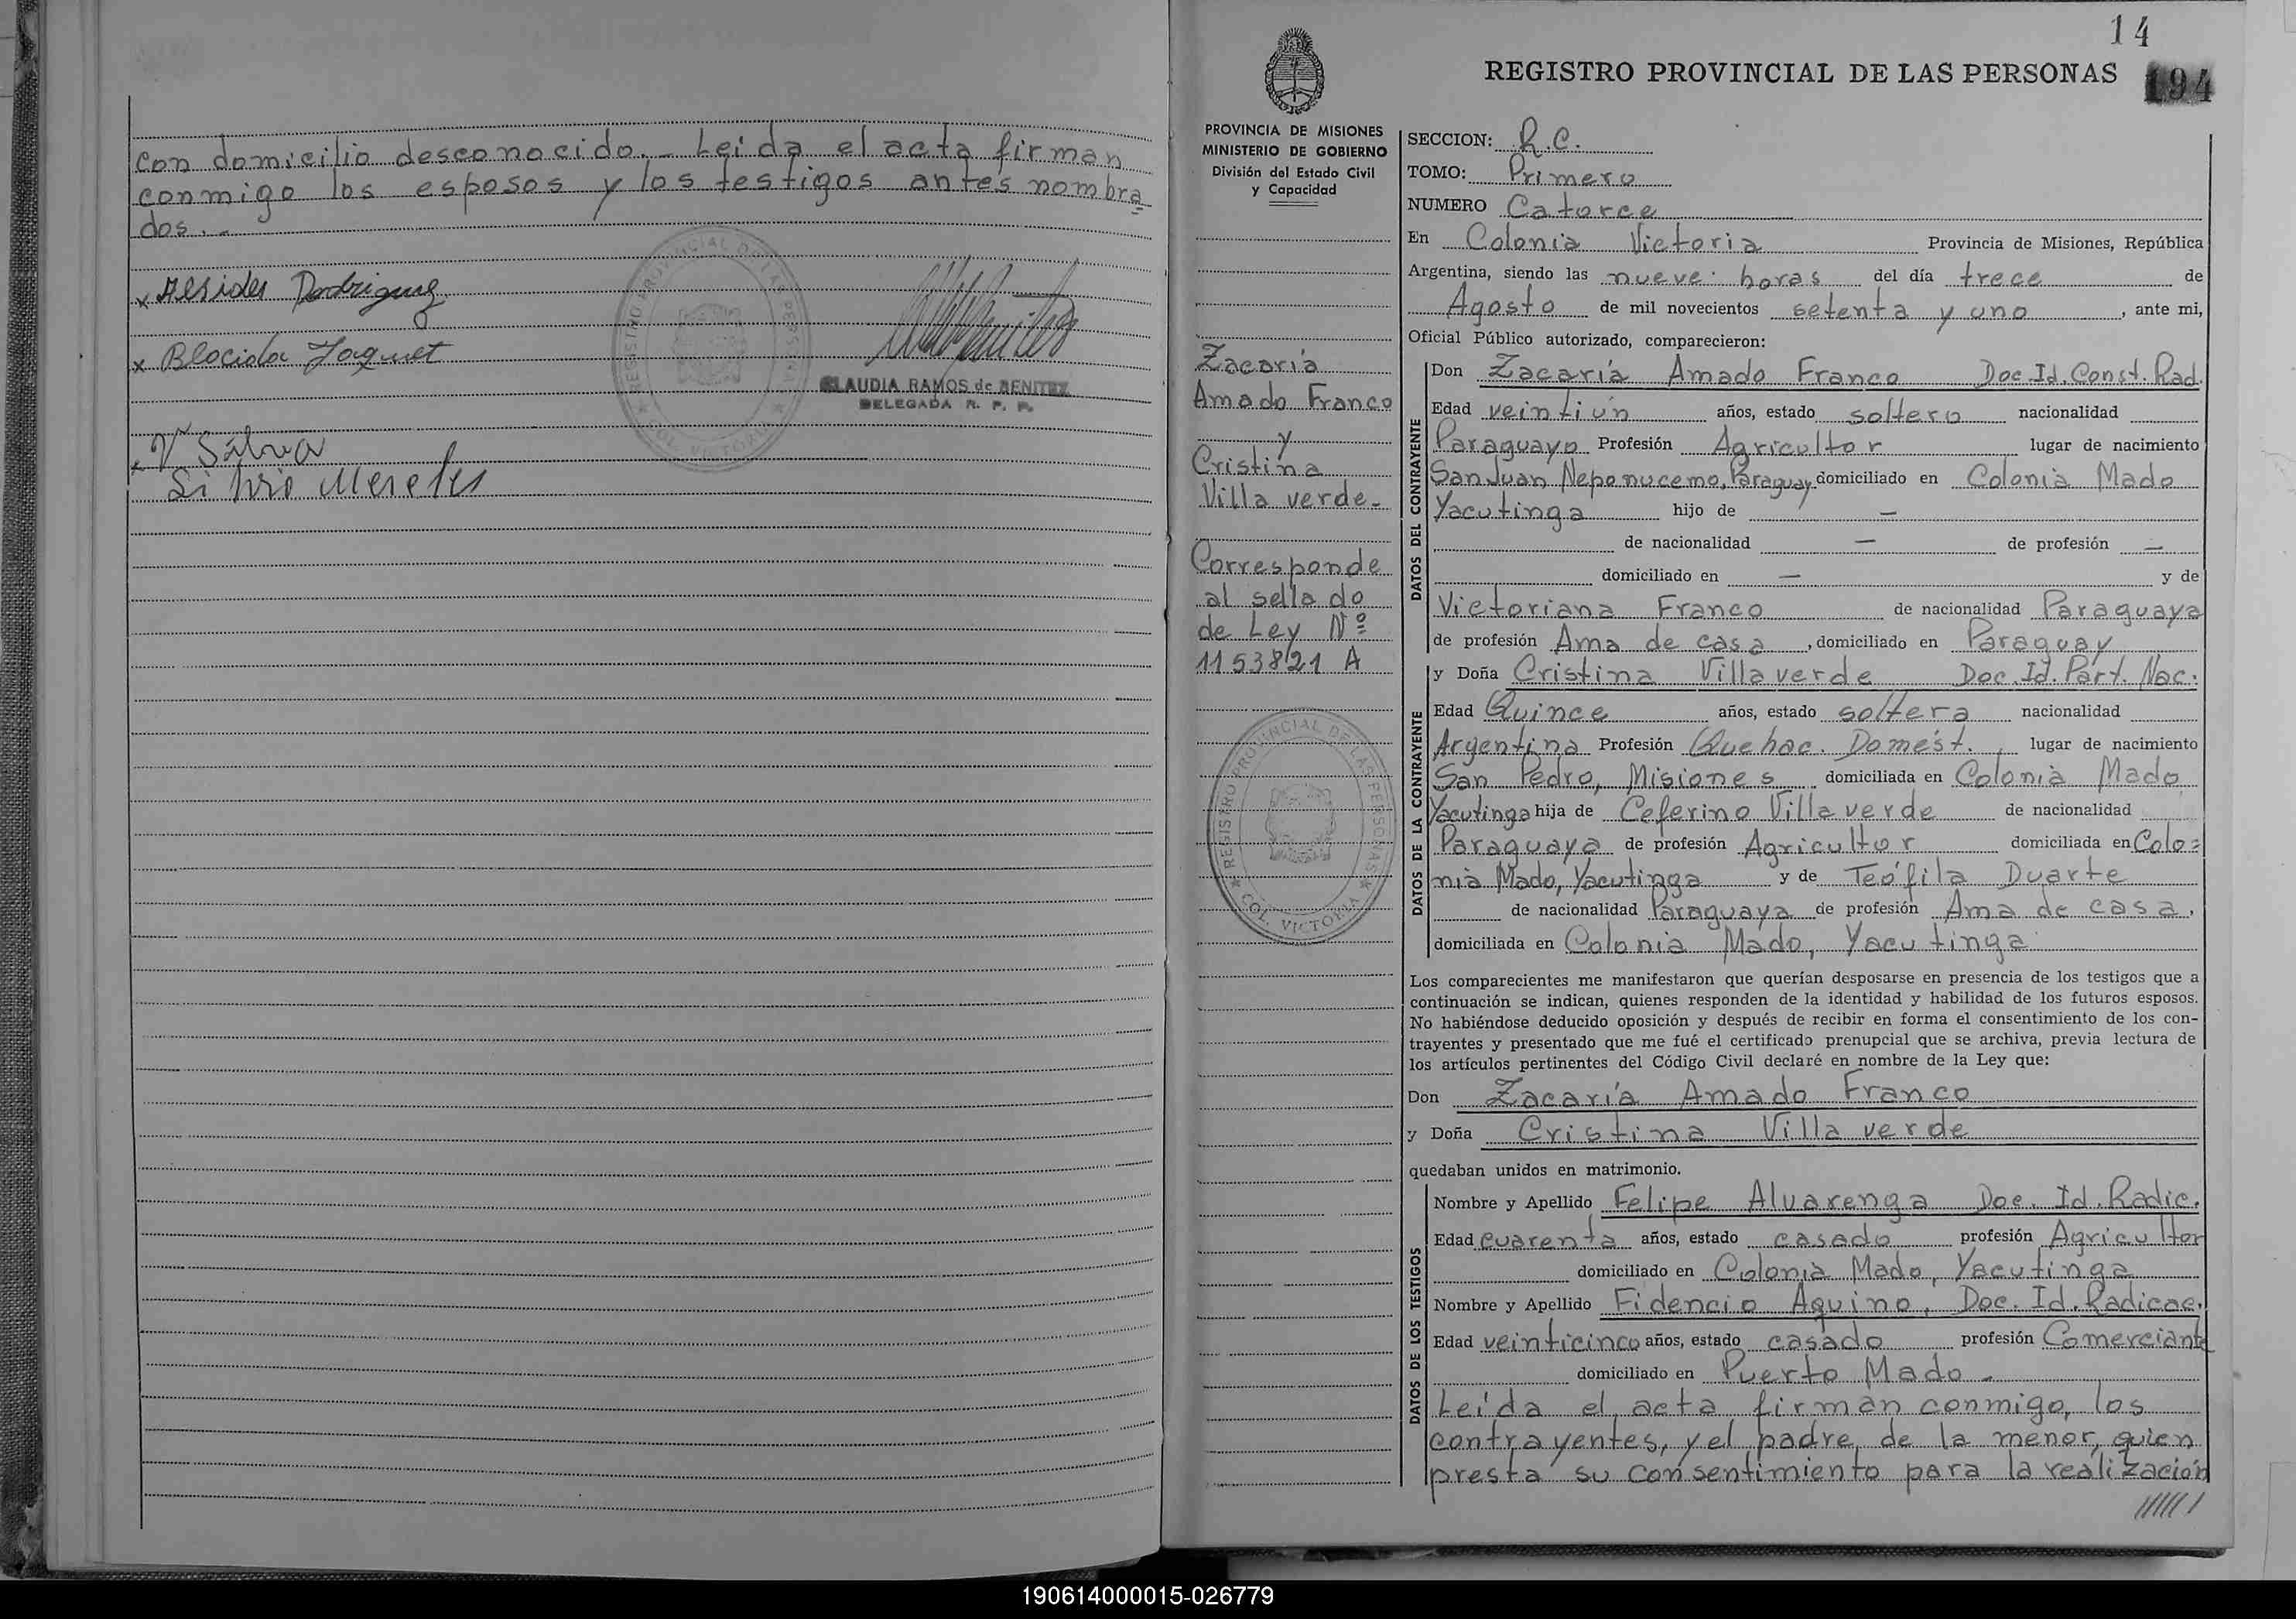 con domicilio desconocido.- Leída el acta firman
conmigo los esposos y los testigos antes nombra
dos.-
x Alsides Rodriguez
x Blacida Jaquet
REGISTRO PROVINCIAL DE LAS PERSONAS
COL. VICTORIA
CLAUDIA RAMOS de BENITEZ
DELEGADA R. P. P.
x V Silva
Silvio Mereles
14
REGISTRO PROVINCIAL DE LAS PERSONAS
194
PROVINCIA DE MISIONES
MINISTERIO DE GOBIERNO
División del Estado Civil
y Capacidad
Zacaría
Amado Franco
y
Cristina
Villa verde-
Corresponde
al sellado
de Ley Nº
1153821 A
REGISTRO PROVINCIAL DE LAS PERSONAS
COL. VICTORIA
SECCION: R.C.
TOMO: Primero
NUMERO Catorce
En Colonia Victoria Provincia de Misiones, República
Argentina, siendo las nueve horas del día trece de
Agosto de mil novecientos setenta y uno, ante mi,
Oficial Público autorizado, comparecieron:
DATOS DEL CONTRAYENTE
Don Zacaría Amado Franco Doc. Id. Const. Rad.
Edad veintiún años, estado soltero nacionalidad
Paraguayo Profesión Agricultor lugar de nacimiento
San Juan Neponucemo, Paraguay domiciliado en Colonia Mado
Yacutinga hijo de —
de nacionalidad — de profesión —
domiciliado en — y de
Victoriana Franco de nacionalidad Paraguaya
de profesión Ama de casa, domiciliado en Paraguay
DATOS DE LA CONTRAYENTE
y Doña Cristina Villa verde Doc. Id. Part. Nac.
Edad Quince años, estado soltera nacionalidad
Argentina Profesión Quehac. Domést. lugar de nacimiento
San Pedro, Misiones domiciliada en Colonia Mado
Yacutinga hija de Ceferino Villa verde de nacionalidad
Paraguaya de profesión Agricultor domiciliada en Colo=
nia Mado, Yacutinga y de Teófila Duarte
de nacionalidad Paraguaya de profesión Ama de casa,
domiciliada en Colonia Mado, Yacutinga
Los comparecientes me manifestaron que querían desposarse en presencia de los testigos que a
continuación se indican, quienes responden de la identidad y habilidad de los futuros esposos.
No habiéndose deducido oposición y después de recibir en forma el consentimiento de los con-
trayentes y presentado que me fué el certificado prenupcial que se archiva, previa lectura de
los artículos pertinentes del Código Civil declaré en nombre de la Ley que:
Don Zacaría Amado Franco
y Doña Cristina Villa verde
quedaban unidos en matrimonio.
DATOS DE LOS TESTIGOS
Nombre y Apellido Felipe Alvarenga Doc. Id. Radic.
Edad cuarenta años, estado casado profesión Agricultor
domiciliado en Colonia Mado, Yacutinga
Nombre y Apellido Fidencio Aquino, Doc. Id. Radicac.
Edad veinticinco años, estado casado profesión Comerciante
domiciliado en Puerto Mado -
Leída el acta firman conmigo, los
contrayentes, y el padre de la menor, quien
presta su consentimiento para la realización
//////
190614000015-026779